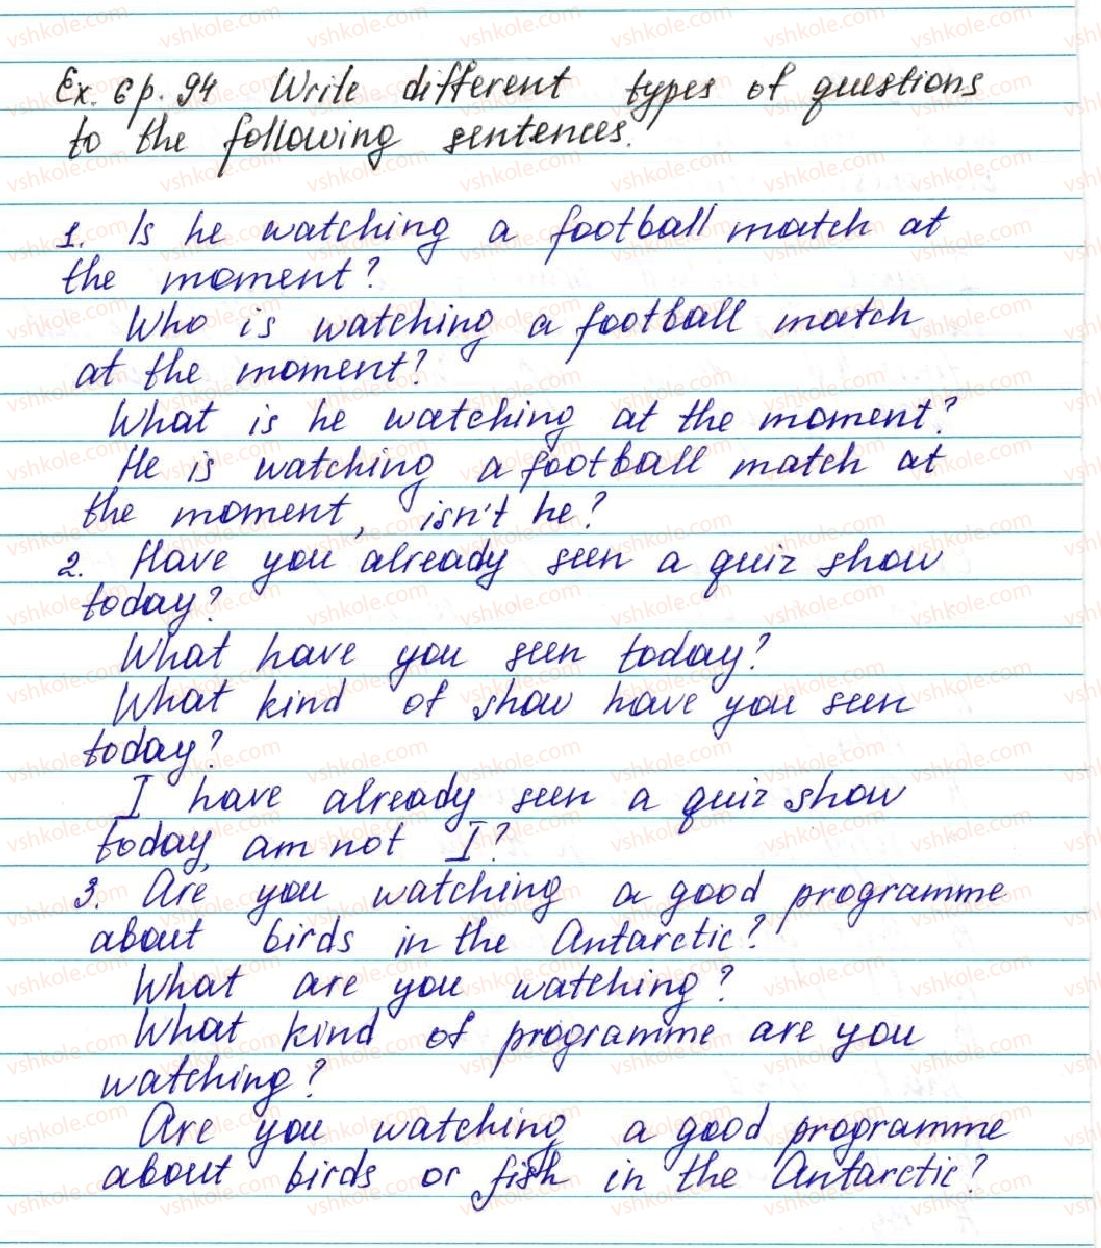 Ex. 6 p. 94 Write different types of questions
to the following sentences.
1. Is he watching a football match at
the moment?
Who is watching a football match
at the moment?
What is he watching at the moment?
He is watching a football match at
the moment, isn't he?
2. Have you already seen a quiz show
today?
What have you seen today?
What kind of show have you seen
today?
I have already seen a quiz show
today, am not I?
3. Are you watching a good programme
about birds in the Antarctic?
What are you watching?
What kind of programme are you
watching?
Are you watching a good programme
about birds or fish in the Antarctic?
vshkole.com